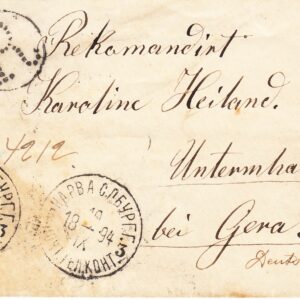 Rekomandirt
Karoline Heiland.
4212
Untermha
bei Gera.
НАРВА С.П.БУРГ.Г.
18 94
IX
3